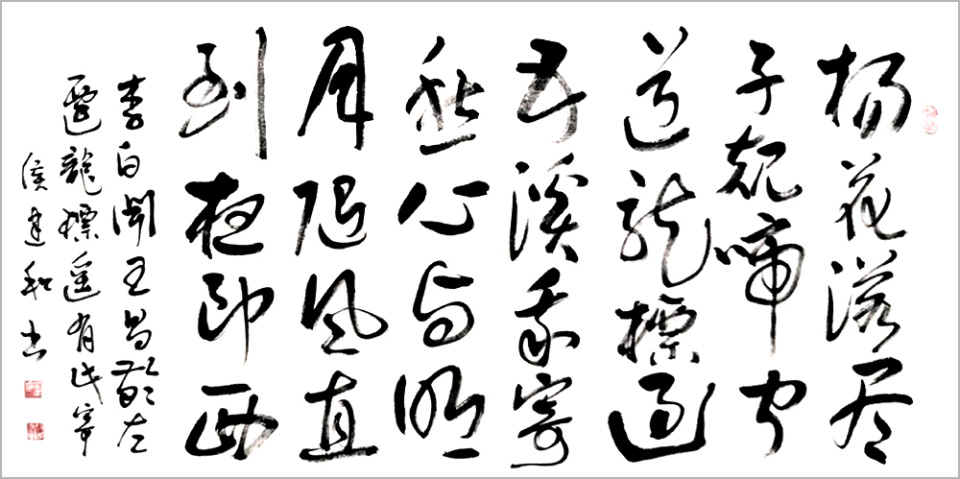 杨花落尽
子规啼闻
道龙標过
五溪我寄
愁心与明
月随风直
到夜郎西
李白闻王昌龄左
遷龍標遥有此寄
侯建和书